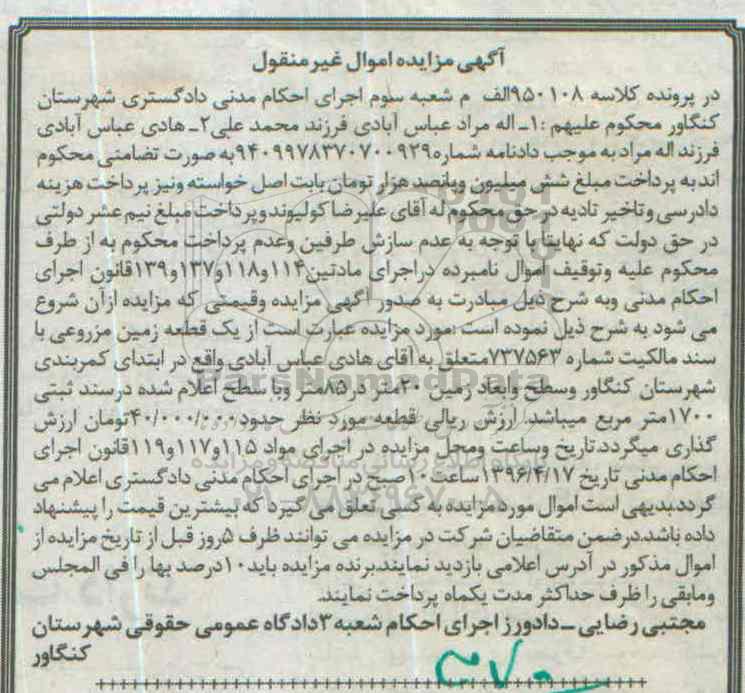 آگهی مزایده اموال غیر منقول
در پرونده کلاسه ۹۵۰۱۰۸الف م شعبه سوم اجرای احکام مدنی دادگستری شهرستان
کنگاور محکوم علیهم :۱ـ اله مراد عباس آبادی فرزند محمد علی۲ـ هادی عباس آبادی
فرزند اله مراد به موجب دادنامه شماره۹۴۰۹۹۷۸۳۷۰۷۰۰۹۲۹به صورت تضامنی محکوم
اند به پرداخت مبلغ شش میلیون وپانصد هزار تومان بابت اصل خواسته ونیز پرداخت هزینه
دادرسی وتاخیر تادیه در حق محکوم له آقای علیرضا کولیوند وپرداخت مبلغ نیم عشر دولتی
در حق دولت که نهایتاً با توجه به عدم سازش طرفین وعدم پرداخت محکوم به از طرف
محکوم علیه وتوقیف اموال نامبرده دراجرای مادتین۱۱۴و۱۱۸و۱۳۷و۱۳۹قانون اجرای
احکام مدنی وبه شرح ذیل مبادرت به صدور آگهی مزایده وقیمتی که مزایده ازآن شروع
می شود به شرح ذیل نموده است :مورد مزایده عبارت است از یک قطعه زمین مزروعی با
سند مالکیت شماره ۷۳۷۵۶۳متعلق به آقای هادی عباس آبادی واقع در ابتدای کمربندی
شهرستان کنگاور وسطح وابعاد زمین ۲۰متر در۸۵متر وبا سطح اعلام شده درسند ثبتی
۱۷۰۰متر مربع میباشد. ارزش ریالی قطعه مورد نظر حدود۴۰/۰۰۰/۰۰۰تومان ارزش
گذاری میگردد.تاریخ وساعت ومحل مزایده در اجرای مواد ۱۱۵و۱۱۷و۱۱۹قانون اجرای
احکام مدنی تاریخ ۱۳۹۶/۴/۱۷ساعت۱۰صبح در اجرای احکام مدنی دادگستری اعلام می
گردد.بدیهی است اموال مورد مزایده به کسی تعلق می گیرد که بیشترین قیمت را پیشنهاد
داده باشد.درضمن متقاضیان شرکت در مزایده می توانند ظرف ۵روز قبل از تاریخ مزایده از
اموال مذکور در آدرس اعلامی بازدید نمایند.برنده مزایده باید۱۰درصد بها را فی المجلس
ومابقی را ظرف حداکثر مدت یکماه پرداخت نمایند.
مجتبی رضایی ـ دادورز اجرای احکام شعبه ۳دادگاه عمومی حقوقی شهرستان
کنگاور
۳۷۰
ParsNamadData